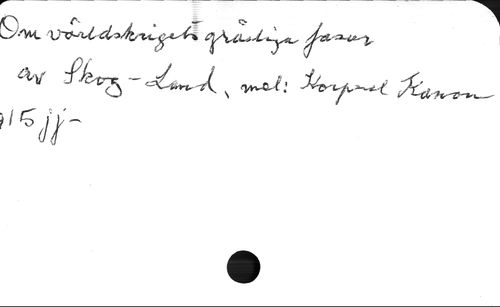 Om världskrigets gräsliga fasor
av Skog-Land, mel: Korpral Kanon
915 jj-